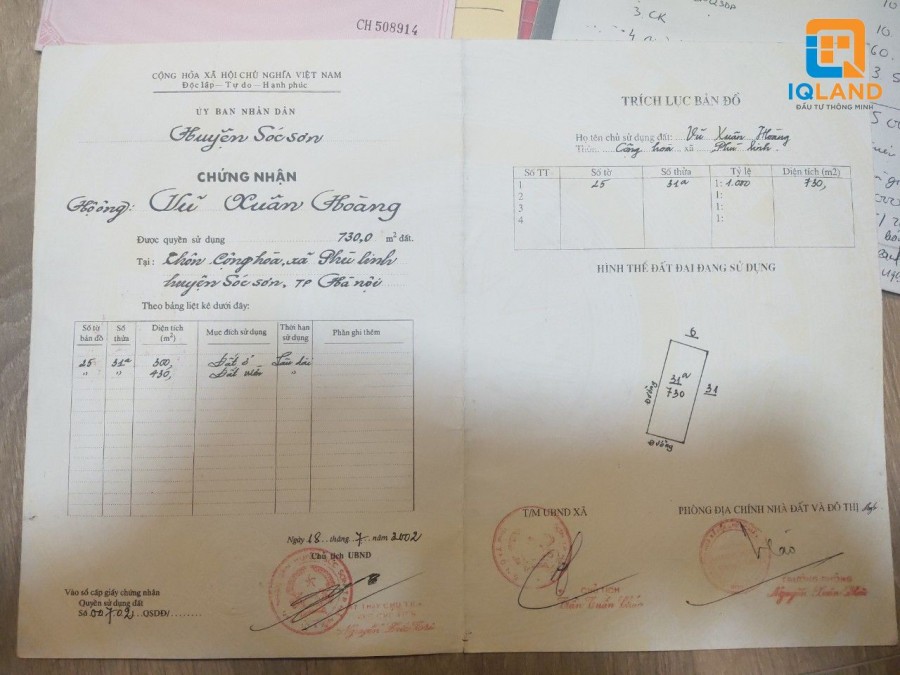 CH 508914
3. CK
10.
60.
3. S
IQLAND
ĐẦU TƯ THÔNG MINH
CỘNG HÒA XÃ HỘI CHỦ NGHĨA VIỆT NAM
Độc lập - Tự do - Hạnh phúc
ỦY BAN NHÂN DÂN
Huyện Sóc sơn
CHỨNG NHẬN
Hộ ông: Vũ Xuân Hoàng
Được quyền sử dụng 730,0 m² đất.
Tại: thôn Cộng hòa, xã Phù linh
huyện Sóc sơn, TP Hà nội
Theo bảng liệt kê dưới đây:
Số tờ bản đồ Số thửa Diện tích (m²) Mục đích sử dụng Thời hạn sử dụng Phần ghi thêm
25 31a 300, Đất ở Lâu dài
" " 430, Đất vườn "
Ngày 18 tháng 7 năm 2002
Chủ tịch UBND
Vào sổ cấp giấy chứng nhận
Quyền sử dụng đất
Số 00702 QSDĐ/
TRÍCH LỤC BẢN ĐỒ
Họ tên chủ sử dụng đất: Vũ Xuân Hoàng
Thôn Cộng hoà xã Phù linh
Số TT Số tờ Số thửa Tỷ lệ Diện tích (m2)
1 25 31a 1: 1.000 730,
2 1:
3 1:
4 1:
HÌNH THỂ ĐẤT ĐAI ĐANG SỬ DỤNG
6
Đường
31a
730
31
Đường
T/M UBND XÃ
PHÒNG ĐỊA CHÍNH NHÀ ĐẤT VÀ ĐÔ THỊ
CHỦ TỊCH
TRƯỞNG PHÒNG